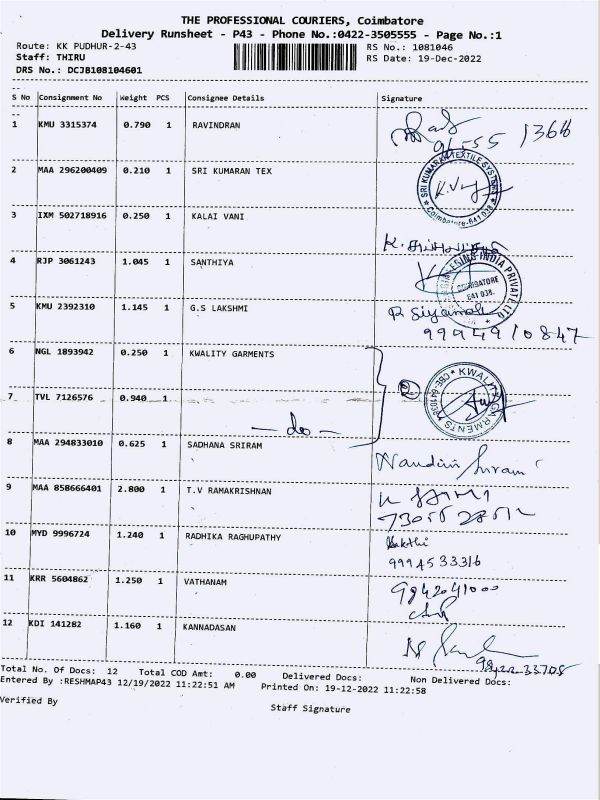 THE PROFESSIONAL COURIERS, Coimbatore
Delivery Runsheet - P43 - Phone No.:0422-3505555 - Page No.:1
Route: KK PUDHUR-2-43 RS No.: 1081046
Staff: THIRU RS Date: 19-Dec-2022
DRS No.: DCJB108104601
S No Consignment No Weight PCS Consignee Details Signature
1 KMU 3315374 0.790 1 RAVINDRAN
2 MAA 296200409 0.210 1 SRI KUMARAN TEX
SRI KUMARAN TEXTILE SYSTEMS
Coimbatore-641 038.
3 IXM 502718916 0.250 1 KALAI VANI
4 RJP 3061243 1.045 1 SANTHIYA
INDIA PRIVATE LTD
COIMBATORE
641 038.
5 KMU 2392310 1.145 1 G.S LAKSHMI
9994910847
6 NGL 1893942 0.250 1 KWALITY GARMENTS
②
KWALITY GARMENTS
7 TVL 7126576 0.940 1
— do —
8 MAA 294833010 0.625 1 SADHANA SRIRAM
Nandini Sriram
9 MAA 858666401 2.800 1 T.V RAMAKRISHNAN
10 MYD 9996724 1.240 1 RADHIKA RAGHUPATHY
9994533316
11 KRR 5604862 1.250 1 VATHANAM
9842041000
12 KDI 141282 1.160 1 KANNADASAN
Total No. Of Docs: 12 Total COD Amt: 0.00 Delivered Docs: Non Delivered Docs:
Entered By :RESHMAP43 12/19/2022 11:22:51 AM Printed On: 19-12-2022 11:22:58
Verified By Staff Signature